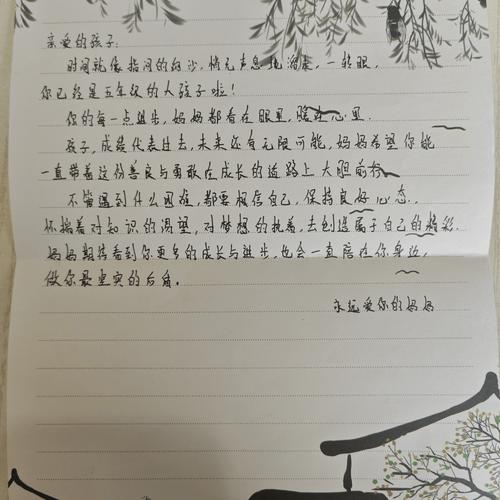 亲爱的孩子:
时间就像指间的细沙,悄无声息地溜走,一转眼,
你已经是五年级的大孩子啦!
你的每一点进步,妈妈都看在眼里,暖在心里.
孩子,成绩代表过去,未来还有无限可能,妈妈希望你能
一直带着这份善良与勇敢在成长的道路上大胆前行
不管遇到什么困难,都要相信自己,保持良好心态.
怀揣着对知识的渴望,对梦想的执着,去创造属于自己的精彩.
妈妈期待看到你更多的成长与进步,也会一直陪在你身边,
做你最坚实的后盾。
永远爱你的妈妈